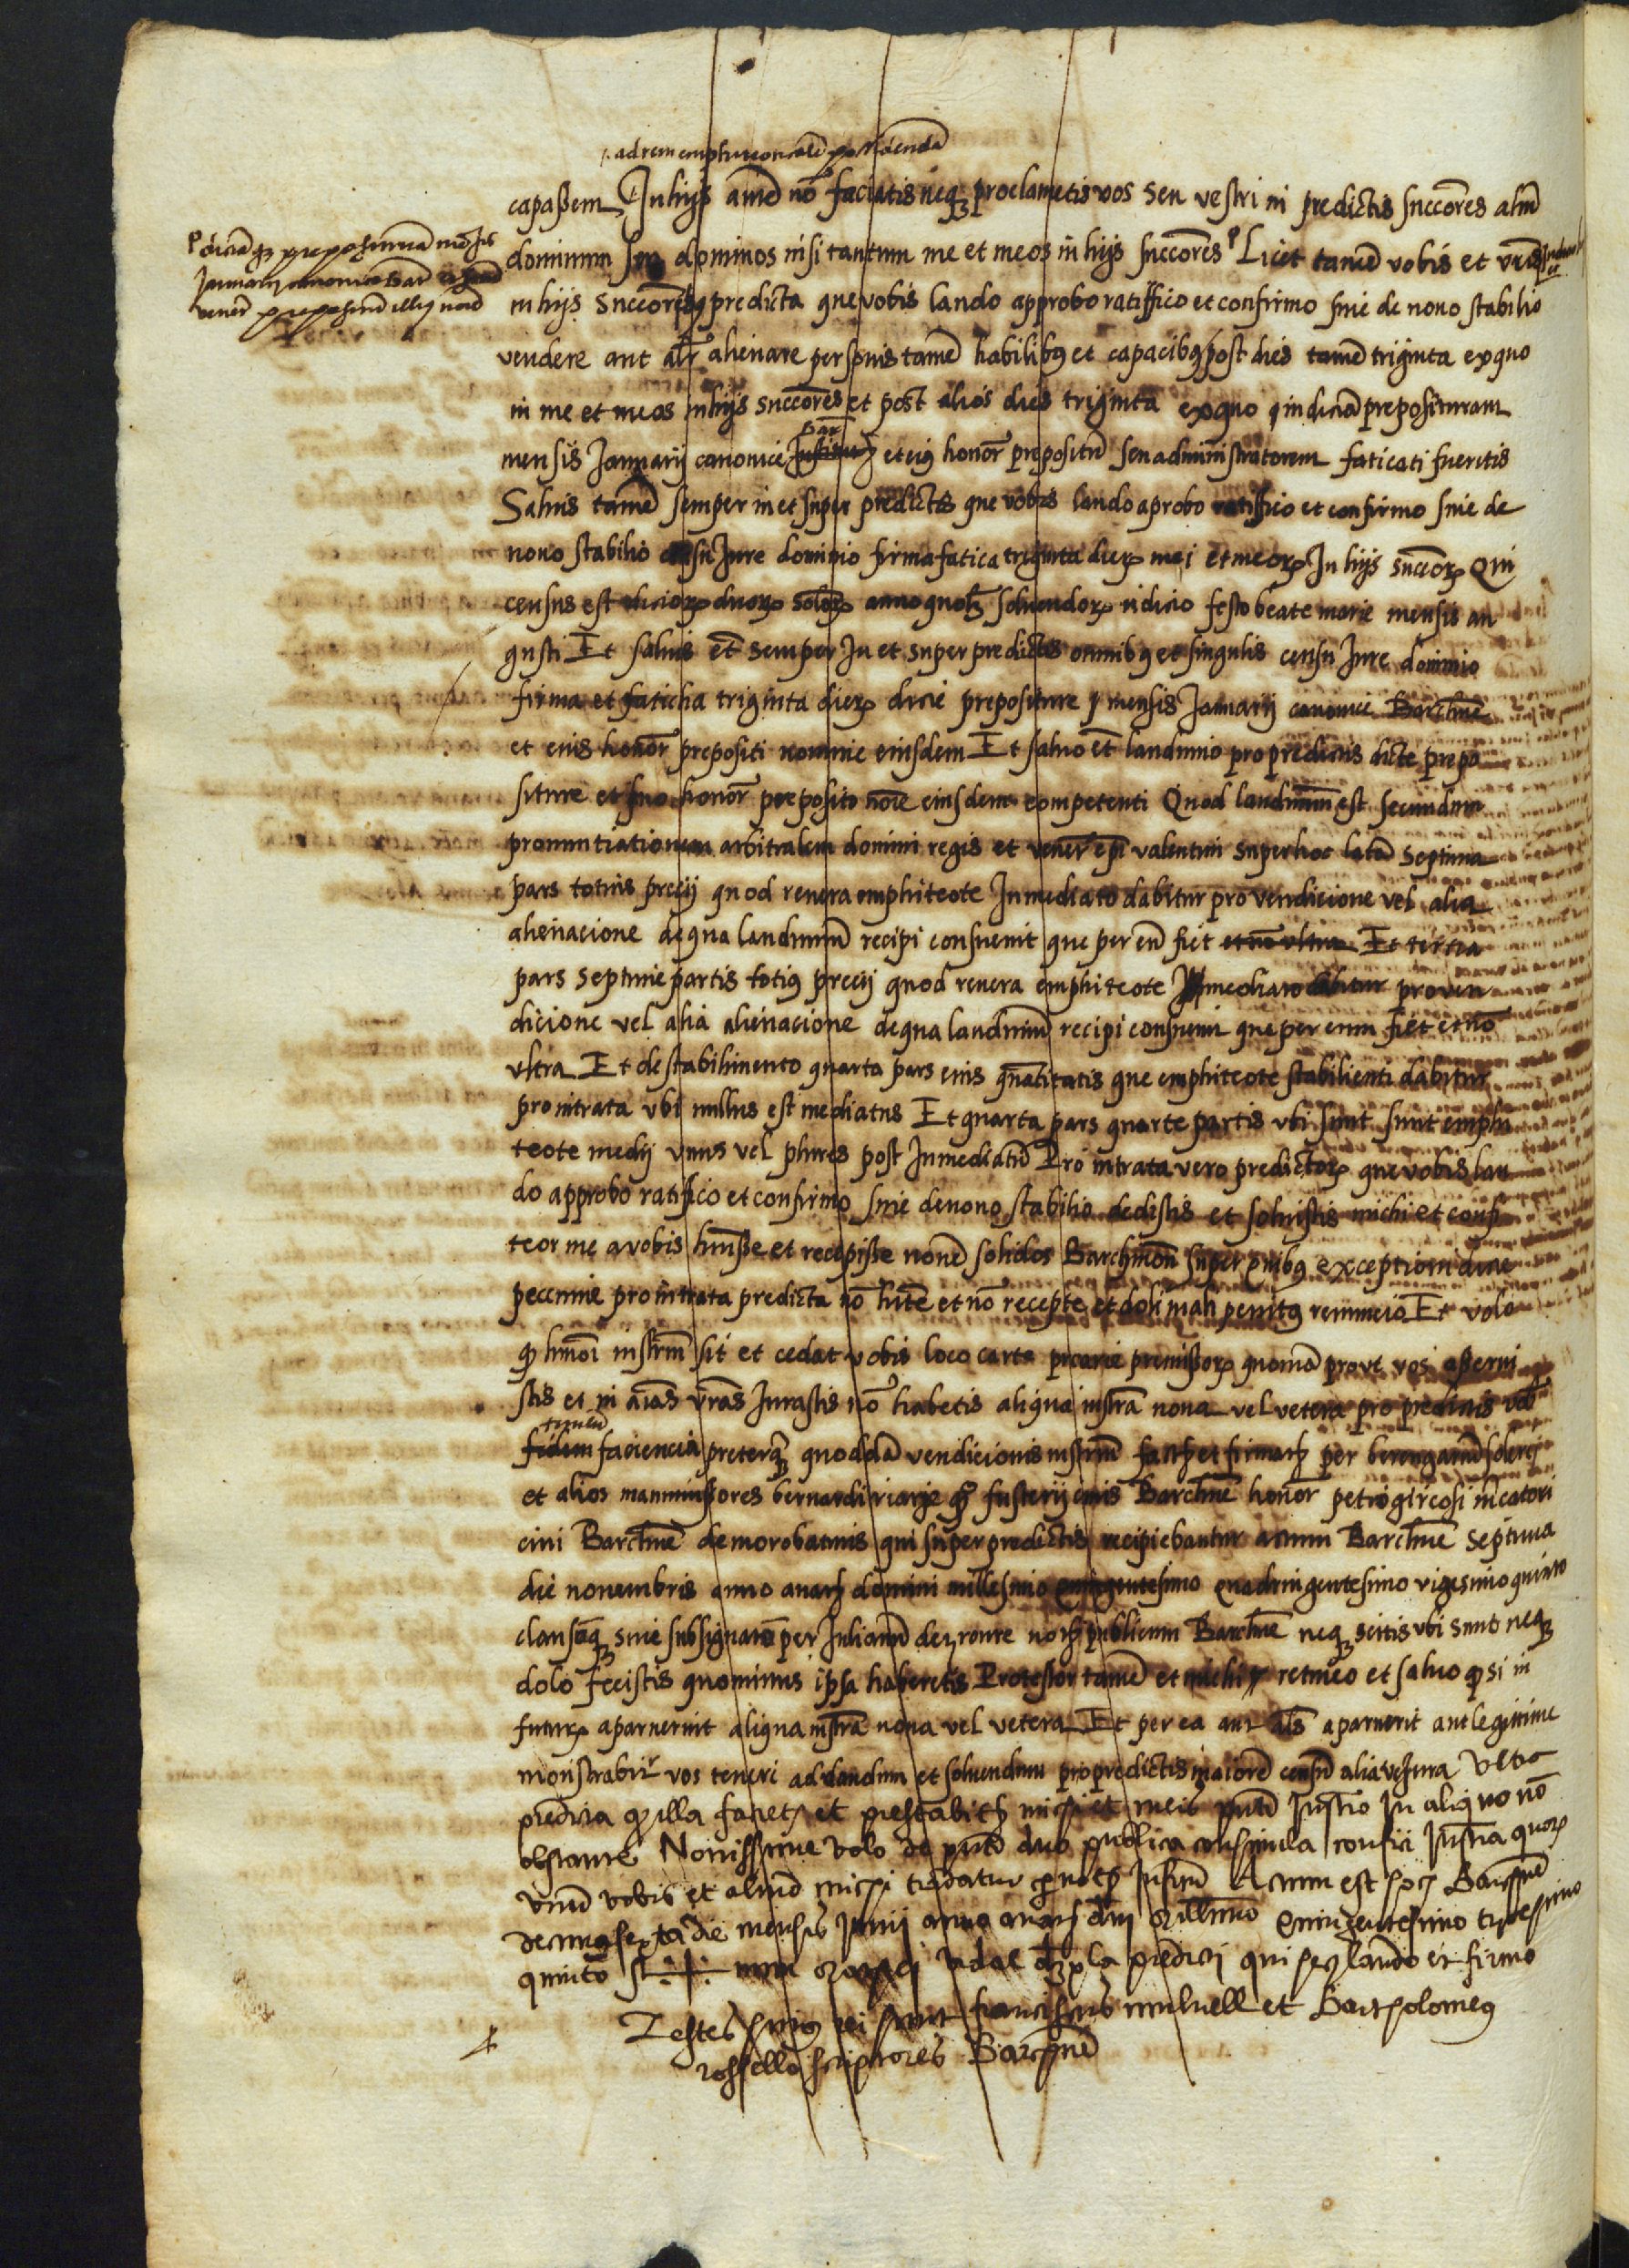 ad rem emphiteoticalē possidendā
capaßem In hijs autē nō faciatis neq proclametis vos seu vestri in predictis succōres aliū
dominum seu dominos nisi tantum me et meos in hijs succōres Licet tamē vobis et vr̄is
dictāq preposituram mēsis
Januarij canonice Bar
vener prepositū illiq noīe
in hijs succōresq predicta que vobis laudo approbo ratiffico et confirmo siue de nouo stabilio
vendere aut alr̄ alienare personis tamē habilibq et capacibq post dies tamē triginta ex quo
in me et meos in hijs succōres et post alios dies triginta ex quo in dictā preposituram
mensis Januarij canonice Bar et eiq honor̄ prepositū seu administratorem faticati fueritis
Saluis tamē semper in et super predictis que vobis laudo aprobo ratiffico et confirmo siue de
nouo stabilio censu Jure dominio firma fatica triginta dierꝝ mei et meorꝝ In hijs succorꝝ Qui
census est dictorꝝ duorꝝ solidorꝝ anno quolꝫ soluendorꝝ in dicto festo beate marie mensis au
gusti Et saluis et̄ semper In et super predictis omnibq et singulis censu Jure dominio
firma et faticha triginta dierꝝ dicte prepositure mensis Januarij canonice Barchn̄e
et eius honor̄ prepositi nomine eiusdem Et saluo et̄ laudimio pro predictis dicte prepo
siture et suo honor̄ preposito noīe eiusdem competenti Quod laudimium est secundum
pronuntiationem arbitralem domini regis et vener̄ epī valentini super hoc latā septima
pars totius precij quod reuera emphiteote Inmediato dabitur pro vendicione vel alia
alienacione de qua laudimiū recipi consueuit que per eū fiet et nō vltra Et tertia
pars septime partis totiq precij quod reuera emphiteote Inmediato dabitur pro ven
dicione vel alia alienacione de qua laudimiū recipi consueuit que per eum fiet et nō
vltra Et de stabilimento quarta pars eius quātitatis que emphiteote stabilienti dabitur
pro intrata vbi nullus est mediatus Et quarta pars quarte partis vbi sunt sunt emphi
teote medij vnus vel plures post Inmediatū Pro intrata vero predictorꝝ que vobis lau
do approbo ratifico et confirmo siue de nouo stabilio dedistis et soluistis michi et confi
teor me a vobis huiße et recepiße nouē solidos Barchinoñ super quibq exceptioni dicte
peccunie pro intrata predicta nō hītē et nō recepte et doli mali penitq renuncio Et volo
ꝙ hmōi instrm̄ sit et cedat vobis loco carta precarie premissorꝝ quoniā prout vos asserui
stis et in aīas vrās Jurastis nō habetis aliqua instrā noua vel vetera pro predictis vobis
fidem faciencia preterqꝫ quoddā vendicionis instrm̄ factū et firmatū per berengariū soleri
et alios manumißores bernardi riarie qō fusterij ciuis Barchn̄e honor̄ petro gircosi mcatori
ciui Barchn̄e de morobatinis qui super predictis recipiebantur actum Barchn̄e septima
die nouembris anno a natꝫ domini millesimo quingentesimo quadringentesimo vigesimo quinto
clausūqꝫ siue subsignatū per Julianū dezroure notꝫ publicum Barchn̄e neqꝫ scitis vbi sunt neqꝫ
dolo fecistis quominus ipsa haberetis Protestor tamē et michi retineo et saluo ꝙ si in
futurꝝ aparuerint aliqua instrā noua vel vetera Et per ea aut als̄ aparuerit aut legitime
monstrabitr vos teneri ad dandum et soluendum pro predictis maiorē censū alia vestura vltra
predicta ꝙ illa faciet et prestabitꝫ michi et meis pn̄ti Instro In aliquo nō
obstante Nouissime volo de pn̄ti duo publica consimila confici Instrā quorꝝ
vnū vobis et aliud michi tradatur per notꝫ Infrm̄ Actum est hoc Barchn̄e
decimasexta die mensis Junij anno a natꝫ dn̄i Millmo Quingentesimo tricesimo
quinto S + num vidal predicti qui hec laudo et firmo
Testes huiq rei sunt franciscus mulnell et Bartholomeq
rossello scriptores Barchn̄e